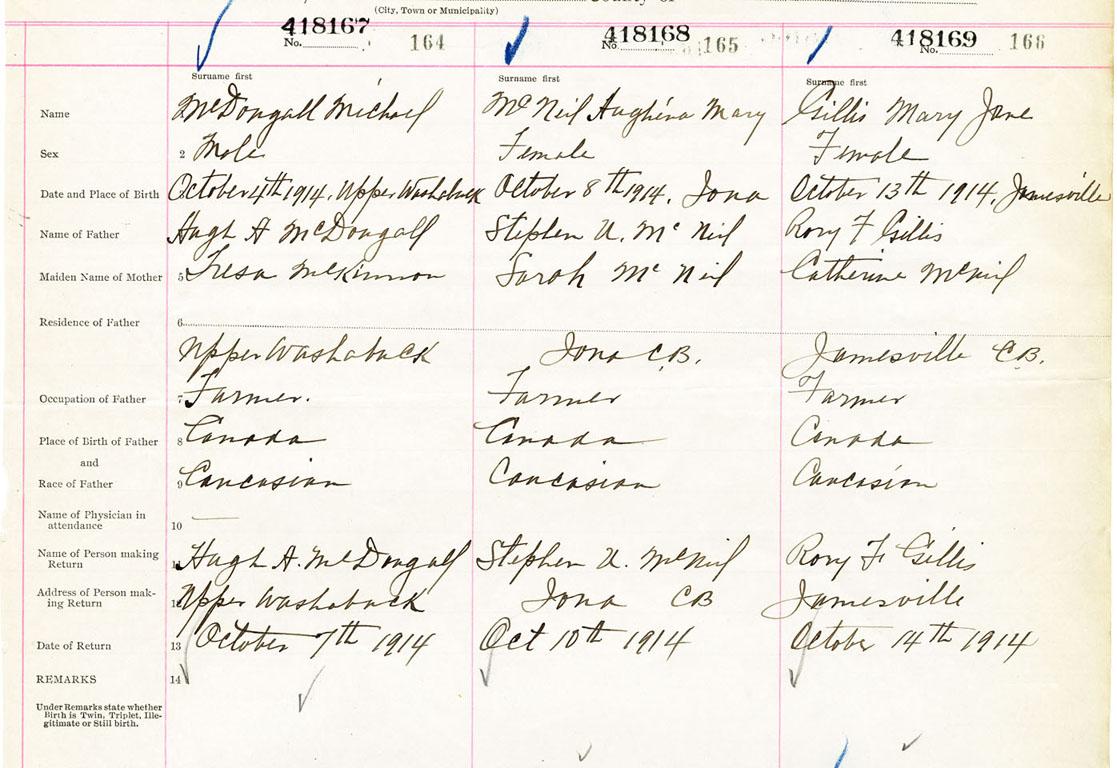 (City, Town or Municipality)
418167 418168 418169
No. 164 No. 165 No. 166
Surname first Surname first Surname first
Name McDougall Michael McNeil Aughena Mary Gillis Mary Jane
Sex 2 Male Female Female
Date and Place of Birth October 4th 1914. Upper Washaback October 8th 1914. Iona October 13th 1914. Jamesville
Name of Father Hugh A McDougall Stephen U. McNeil Rory F Gillis
Maiden Name of Mother 5 Tresa McKinnon Sarah McNeil Catherine McNeil
Residence of Father 6
Upper Washaback Iona C.B. Jamesville C.B.
Occupation of Father 7 Farmer. Farmer Farmer
Place of Birth of Father 8 Canada Canada Canada
and
Race of Father 9 Caucasian Caucasian Caucasian
Name of Physician in
attendance 10 —
Name of Person making
Return 11 Hugh A. McDougall Stephen U. McNeil Rory F Gillis
Address of Person mak-
ing Return 12 Upper Washaback Iona CB Jamesville
Date of Return 13 October 7th 1914 Oct 10th 1914 October 14th 1914
REMARKS 14
Under Remarks state whether
Birth is Twin, Triplet, Ille-
gitimate or Still birth.